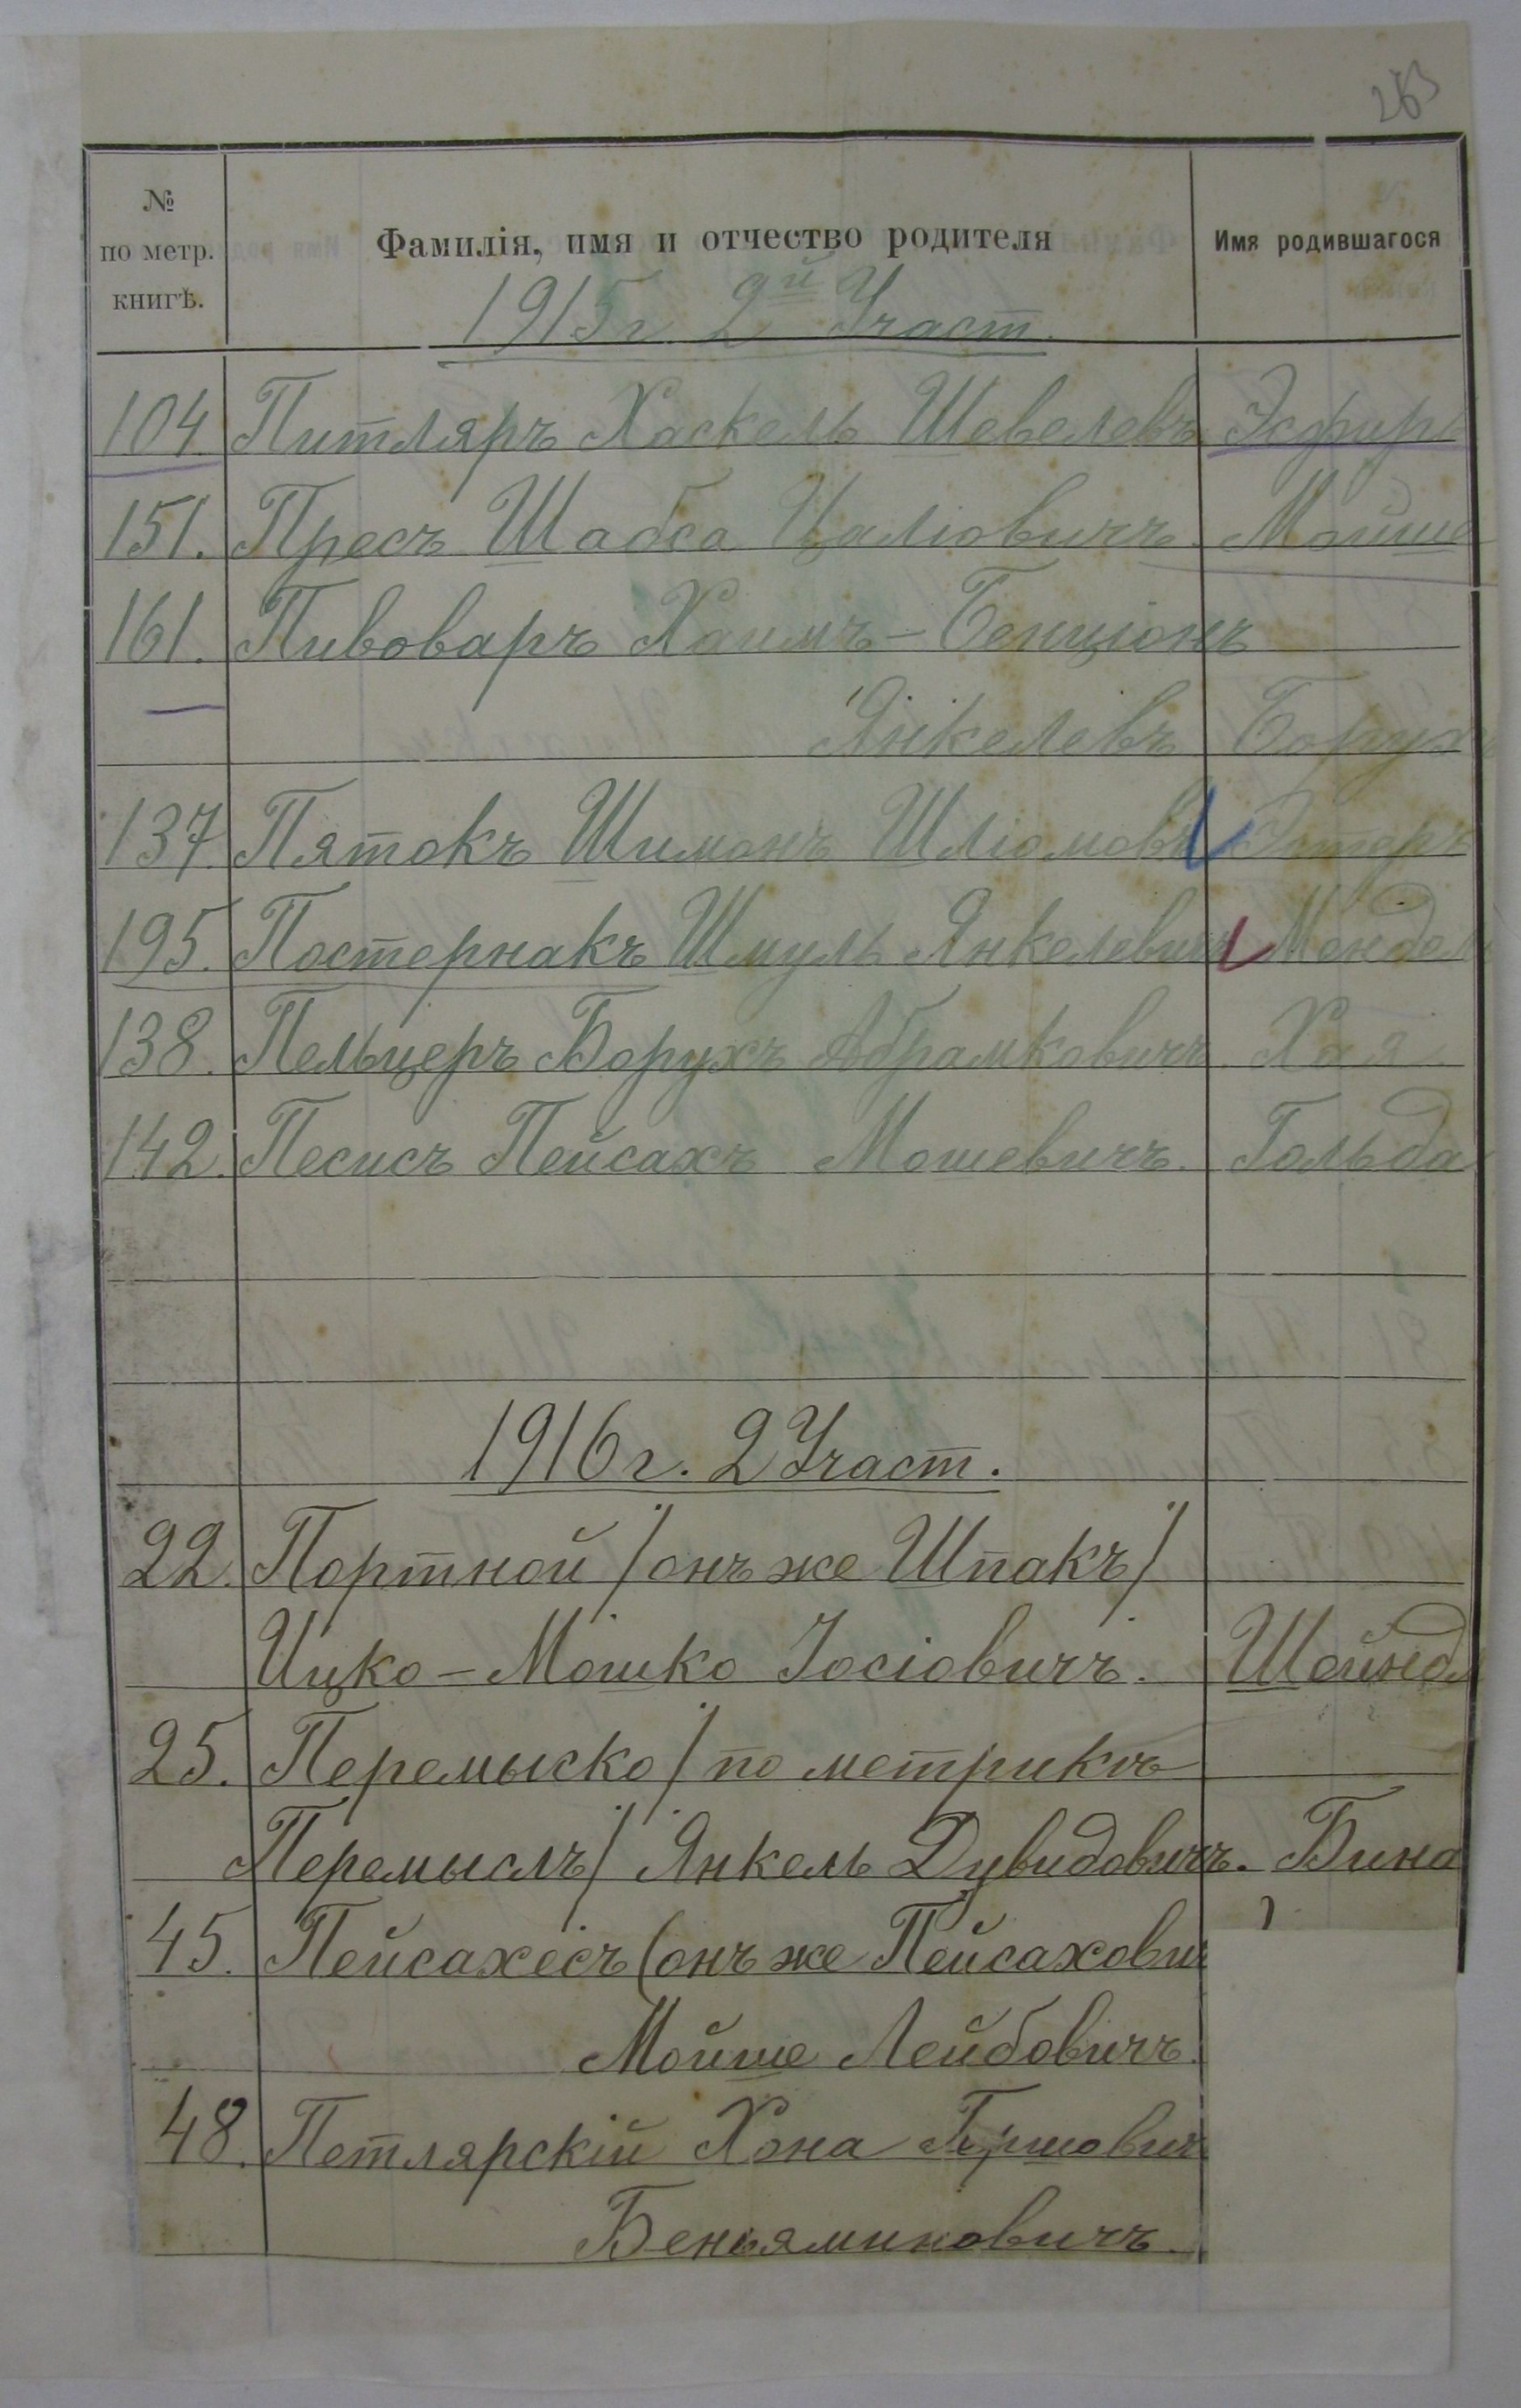 263
№
по метр.
книгѣ.
Фамилія, имя и отчество родителя
Имя родившагося
1915 г. 2й Участ.
104 Питляръ Хаскель Шевелевъ Эсфирь
151. Пресъ Шабса Цаліовичъ Мойше
161. Пивоваръ Хаимъ-Бенціонъ
Янкелевъ Борухъ
137. Пятокъ Шимонъ Шліомовъ
195. Постернакъ Шмуль Янкелевичъ Мендель
138. Пельцеръ Борухъ Абрамковичъ Хая
142. Песисъ Пейсахъ Мошевичъ. Гольда
1916 г. 2 Участ.
22. Портной / онъ же Шпакъ /
Ицко-Мошко Іосіовичъ. Шейндл
25. Перемыско / по метрикѣ
Перемыслъ / Янкель Дувидовичъ. Бина
45. Пейсахесъ (онъ же Пейсахович
Мойше Лейбовичъ.
48. Петлярскій Хона Гершович
Беньяминовичъ.